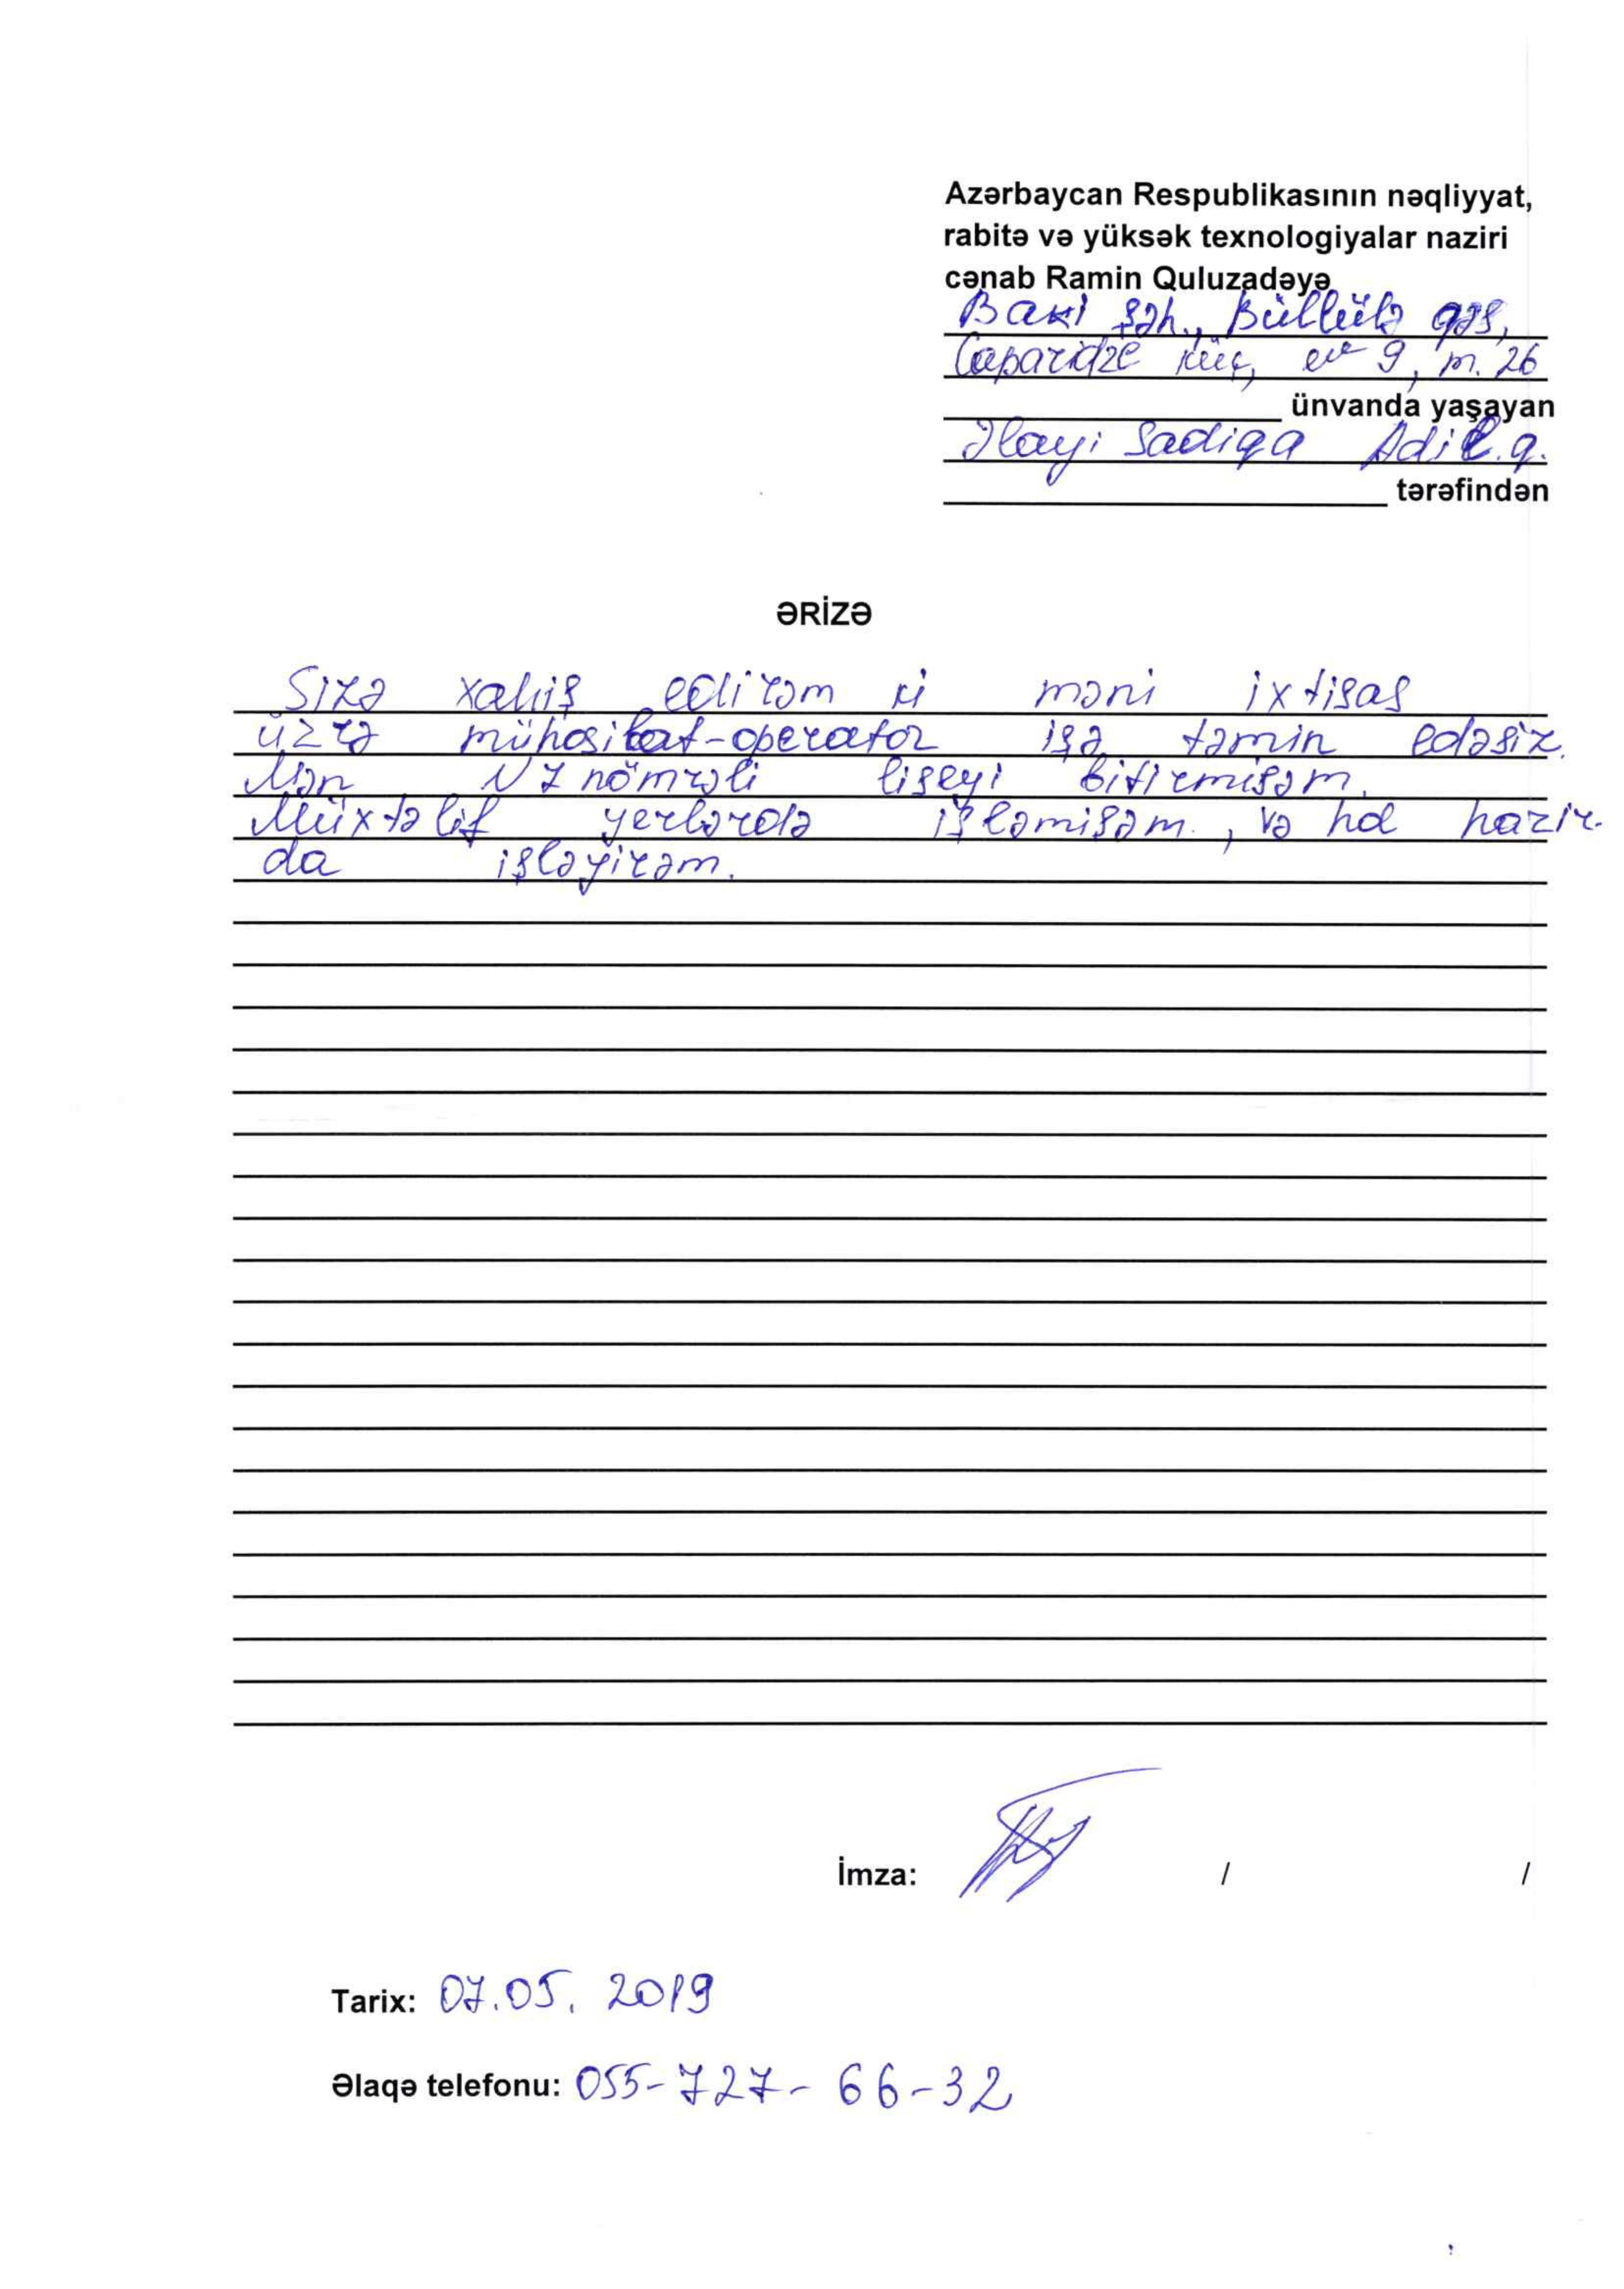 Azərbaycan Respublikasının nəqliyyat,
rabitə və yüksək texnologiyalar naziri
cənab Ramin Quluzadəyə
Baki şəh., Büllülə qəs,
Caparidze küç, ev 9, m. 26
ünvanda yaşayan
Əlayi Sadiqa Adil.q.
tərəfindən
ƏRİZƏ
Sizə xahiş edirəm ki məni ixtisas
üzrə mühasibat-operator işə təmin edəsiz.
Mən N 7 nömrəli liseyi bitirmişəm.
Müxtəlif yerlərdə işləmişəm., və hal hazir-
da işləyirəm.
İmza: / /
Tarix: 07.05.2019
Əlaqə telefonu: 055-727-66-32